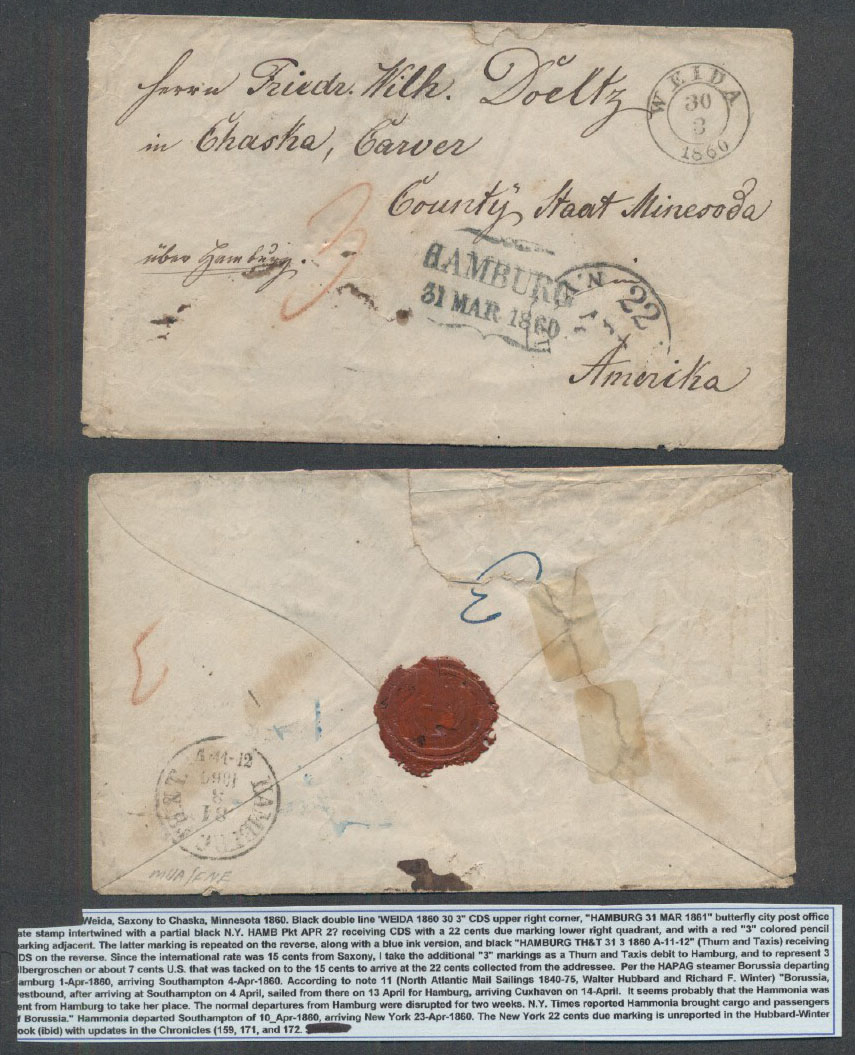 Herrn Friedr. Wilh. Doeltz
in Chaska, Carver
County, Staat Minesoda
über Hamburg.
in
Amerika
WEIDA
30
3
1860
3
HAMBURG
31 MAR 1860
N
22
3
3
A-11-12
1860
3
31
HAMBURG TH&T.
Weida, Saxony to Chaska, Minnesota 1860. Black double line 'WEIDA 1860 30 3" CDS upper right corner, "HAMBURG 31 MAR 1861" butterfly city post office
ate stamp intertwined with a partial black N.Y. HAMB Pkt APR 27 receiving CDS with a 22 cents due marking lower right quadrant, and with a red "3" colored pencil
arking adjacent. The latter marking is repeated on the reverse, along with a blue ink version, and black "HAMBURG TH&T 31 3 1860 A-11-12" (Thurn and Taxis) receiving
DS on the reverse. Since the international rate was 15 cents from Saxony, I take the additional "3" markings as a Thurn and Taxis debit to Hamburg, and to represent 3
ilbergroschen or about 7 cents U.S. that was tacked on to the 15 cents to arrive at the 22 cents collected from the addressee. Per the HAPAG steamer Borussia departing
amburg 1-Apr-1860, arriving Southampton 4-Apr-1860. According to note 11 (North Atlantic Mail Sailings 1840-75, Walter Hubbard and Richard F. Winter) "Borussia,
estbound, after arriving at Southampton on 4 April, sailed from there on 13 April for Hamburg, arriving Cuxhaven on 14-April. It seems probably that the Hammonia was
ent from Hamburg to take her place. The normal departures from Hamburg were disrupted for two weeks. N.Y. Times reported Hammonia brought cargo and passengers
f Borussia." Hammonia departed Southampton of 10_Apr-1860, arriving New York 23-Apr-1860. The New York 22 cents due marking is unreported in the Hubbard-Winter
ook (ibid) with updates in the Chronicles (159, 171, and 172.